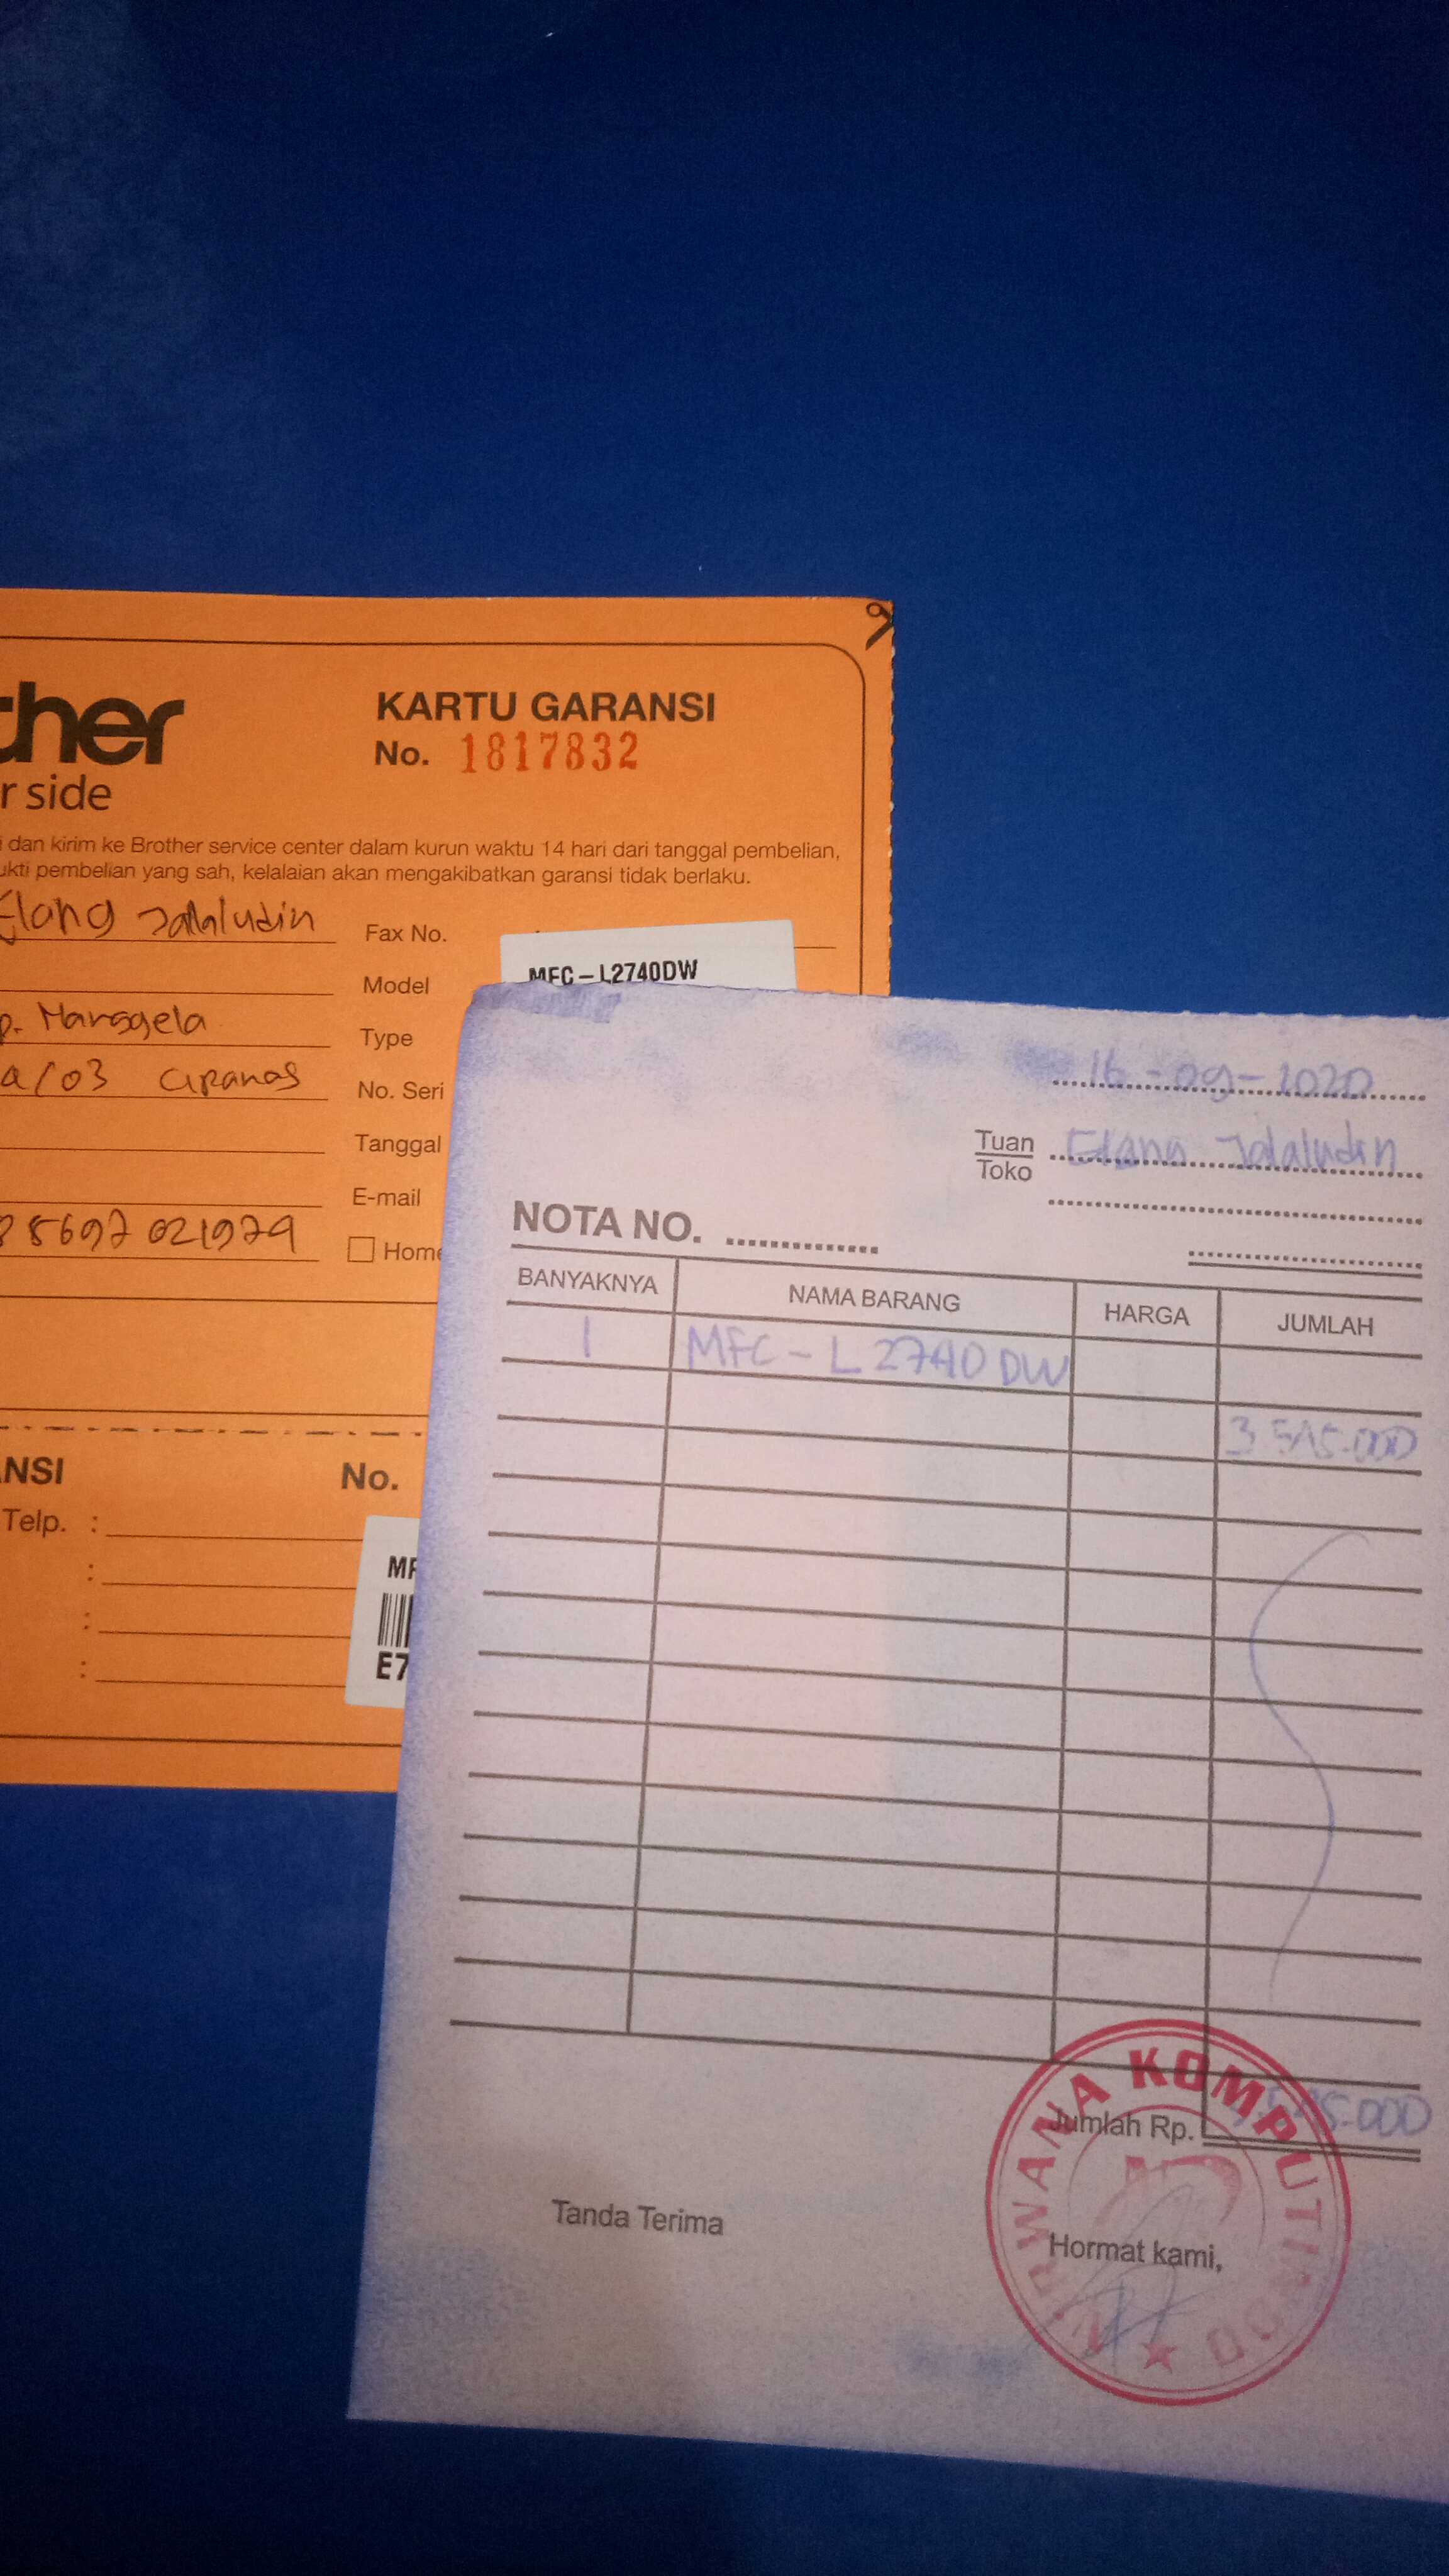 ther
r side
KARTU GARANSI
No. 1817832
dan kirim ke Brother service center dalam kurun waktu 14 hari dari tanggal pembelian,
ukti pembelian yang sah, kelalaian akan mengakibatkan garansi tidak berlaku.
Elang Jalaludin
Fax No.
Model
MFC-L2740DW
p. Manggela
Type
a/03 Cipanas
No. Seri
Tanggal
E-mail
85697021979
Home
NSI
No.
Telp. :
:
:
:
MF
E7
16-09-2020
Tuan
Toko
Elang Jalaludin
NOTA NO.
BANYAKNYA NAMA BARANG HARGA JUMLAH
1 MFC-L2740DW
Jumlah Rp.
Tanda Terima
Hormat kami,
NIRWANA KOMPUTINDO